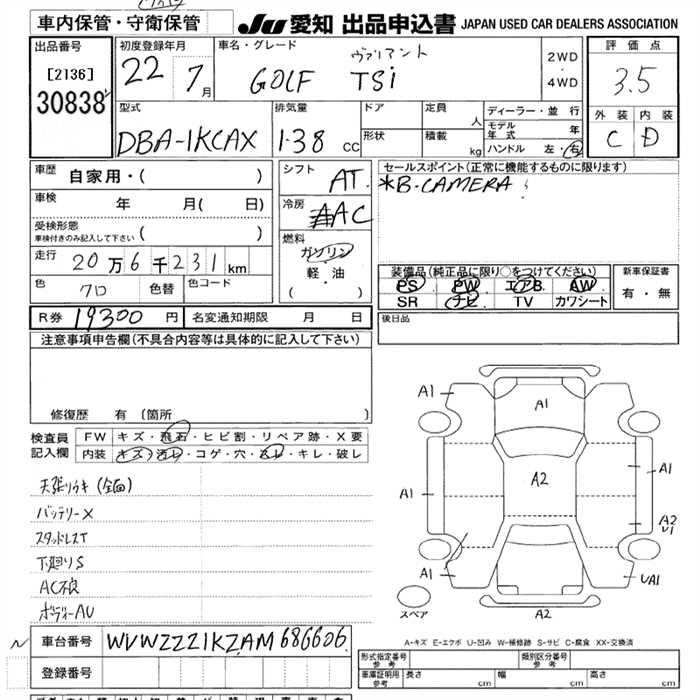 車内保管・守衛保管
JU 愛知 出品申込書 JAPAN USED CAR DEALERS ASSOCIATION
出品番号
[2136]
30838
初度登録年月
22 7月
車名・グレード
ヴァリアント
GOLF TSi
2WD
・
4WD
評価点
3.5
外装 内装
C D
型式
DBA-1KCAX
排気量
1.38 cc
ドア
形状
定員 人
積載 kg
ディーラー・並行
モデル年式 年
ハンドル 左・右
車歴
自家用・( )
車検 年 月( 日)
受検形態
車検付きのみ記入して下さい ( )
走行
20万6千231km
色 クロ 色替 色コード
シフト AT
冷房 AAC
燃料
ガソリン
軽・油
( )
セールスポイント(正常に機能するものに限ります)
*B.CAMERA
装備品(純正品に限り○をつけてください)
PS PW エアB AW
SR ナビ TV カワシート
新車保証書
有・無
R券 19300円 名変通知期限 月 日
後日品
注意事項申告欄(不具合内容等は具体的に記入して下さい)
修復歴 有(箇所 )
検査員記入欄
FW キズ・飛石・ヒビ割・リペア跡・X要
内装 キズ・汚レ・コゲ・穴・スレ・キレ・破レ
天張リウキ(全面)
バッテリーX
スタッドレスT
下廻りS
AC不良
ボディーAU
A1
A1
A2
A1
A1
A2
U1
A1
UA1
スペア
A2
A-キズ E-エクボ U-凹み W-補修跡 S-サビ C-腐食 XX-交換済
車台番号 WVWZZZ1KZAM686606
登録番号
形式指定番号 参考
類別区分番号 参考
車庫証明用 参考 長さ cm 幅 cm 高さ cm